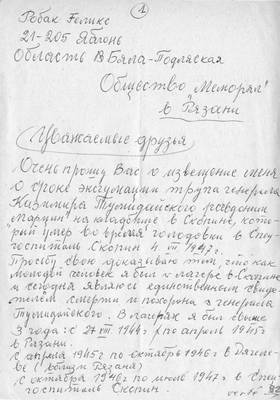 1
Робак Феликс
21-205 Яблонь
Область Бяла-Подляская
Общество "Меморял"
в Рязани
Уважаемые друзья
Очень прошу Вас о извещение меня
о сроке эксгумации трупа генерала
Казимира Тумидайского псевдоним
"Марцин" на кладбище в Скопине, кото-
рый умер во время голодовки в Спец
госпиталь Скопин 4. VII 1947 г.
Просьбу свою доказываю тем, что как
молодой человек я был в лагере в Скопине
и сегодня являюсь единственным свиде-
телем смерти и похорона генерала
Тумидайского. В лагерах я был свыше
3 года: с 27 VIII 1944 г по апрель 1945 г
в Рязани.
с апреля 1945 г по октябрь 1946 в Дягиле-
ве (вблизи Рязана)
с октября 1946 г по июль 1947 г. в Спец
госпиталь Скопин.